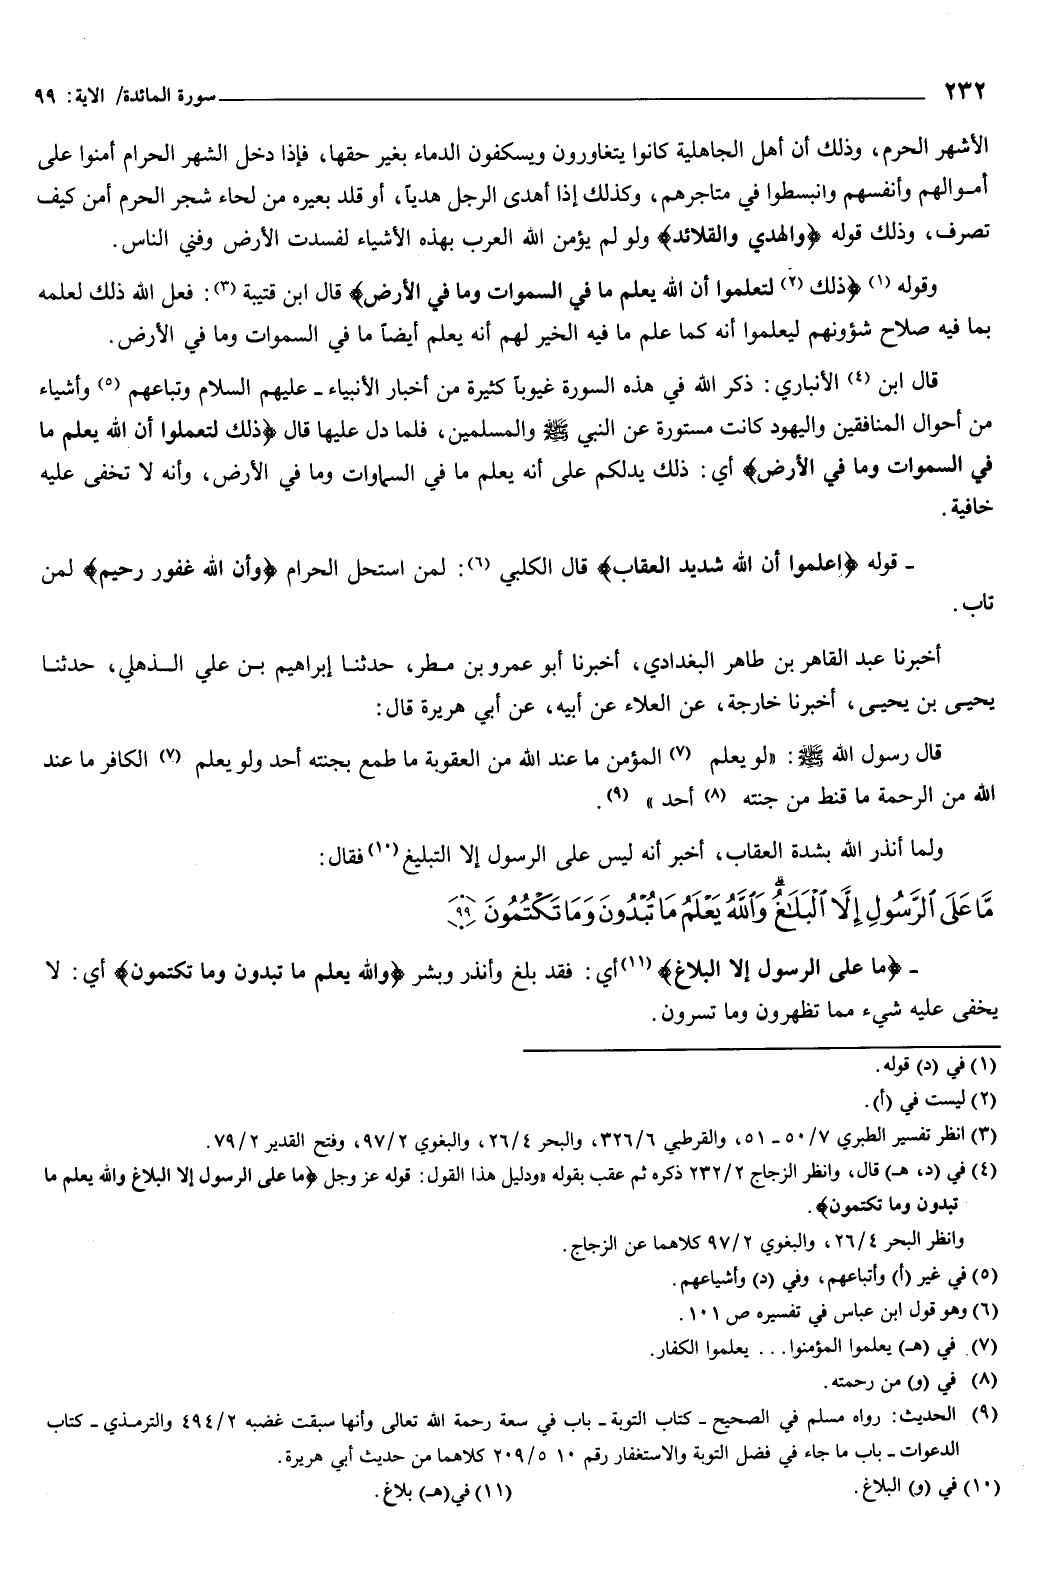 ٢٣٢ سورة المائدة/ الآية: ٩٩
الأشهر الحرم، وذلك أن أهل الجاهلية كانوا يتغاورون ويسكفون الدماء بغير حقها، فإذا دخل الشهر الحرام أمنوا على
أموالهم وأنفسهم وانبسطوا في متاجرهم، وكذلك إذا أهدى الرجل هدياً، أو قلد بعيره من لحاء شجر الحرم أمن كيف
تصرف، وذلك قوله ﴿والهدي والقلائد﴾ ولو لم يؤمن الله العرب بهذه الأشياء لفسدت الأرض وفني الناس.
وقوله (١) ﴿ذلك (٢) لتعلموا أن الله يعلم ما في السموات وما في الأرض﴾ قال ابن قتيبة (٣): فعل الله ذلك لعلمه
بما فيه صلاح شؤونهم ليعلموا أنه كما علم ما فيه الخير لهم أنه يعلم أيضاً ما في السموات وما في الأرض.
قال ابن (٤) الأنباري: ذكر الله في هذه السورة غيوباً كثيرة من أخبار الأنبياء ـ عليهم السلام وتباعهم (٥) وأشياء
من أحوال المنافقين واليهود كانت مستورة عن النبي ﷺ والمسلمين، فلما دل عليها قال ﴿ذلك لتعملوا أن الله يعلم ما
في السموات وما في الأرض﴾ أي: ذلك يدلكم على أنه يعلم ما في السماوات وما في الأرض، وأنه لا تخفى عليه
خافية.
ـ قوله ﴿إعلموا أن الله شديد العقاب﴾ قال الكلبي (٦): لمن استحل الحرام ﴿وأن الله غفور رحيم﴾ لمن
تاب.
أخبرنا عبد القاهر بن طاهر البغدادي، أخبرنا أبو عمرو بن مطر، حدثنا إبراهيم بن علي الذهلي، حدثنا
يحيى بن يحيى، أخبرنا خارجة، عن العلاء عن أبيه، عن أبي هريرة قال:
قال رسول الله ﷺ: «لو يعلم (٧) المؤمن ما عند الله من العقوبة ما طمع بجنته أحد ولو يعلم (٧) الكافر ما عند
الله من الرحمة ما قنط من جنته (٨) أحد» (٩).
ولما أنذر الله بشدة العقاب، أخبر أنه ليس على الرسول إلا التبليغ (١٠) فقال:
مَّا عَلَى ٱلرَّسُولِ إِلَّا ٱلْبَلَـٰغُ ۗ وَٱللَّهُ يَعْلَمُ مَا تُبْدُونَ وَمَا تَكْتُمُونَ ﴿٩٩﴾
ـ ﴿ما على الرسول إلا البلاغ﴾ (١١) أي: فقد بلغ وأنذر وبشر ﴿والله يعلم ما تبدون وما تكتمون﴾ أي: لا
يخفى عليه شيء مما تظهرون وما تسرون.
(١) في (د) قوله.
(٢) ليست في (أ).
(٣) انظر تفسير الطبري ٧/ ٥٠ ـ ٥١، والقرطبي ٦/ ٣٢٦، والبحر ٤/ ٢٦، والبغوي ٢/ ٩٧، وفتح القدير ٢/ ٧٩.
(٤) في (د، هـ) قال، وانظر الزجاج ٢/ ٢٣٢ ذكره ثم عقب بقوله «ودليل هذا القول: قوله عز وجل ﴿ما على الرسول إلا البلاغ والله يعلم ما
تبدون وما تكتمون﴾.
وانظر البحر ٤/ ٢٦، والبغوي ٢/ ٩٧ كلاهما عن الزجاج.
(٥) في غير (أ) وأتباعهم، وفي (د) وأشياعهم.
(٦) وهو قول ابن عباس في تفسيره ص ١٠١.
(٧) في (هـ) يعلموا المؤمنوا... يعلموا الكفار.
(٨) في (و) من رحمته.
(٩) الحديث: رواه مسلم في الصحيح ـ كتاب التوبة ـ باب في سعة رحمة الله تعالى وأنها سبقت غضبه ٢/ ٤٩٤ والترمذي ـ كتاب
الدعوات ـ باب ما جاء في فضل التوبة والاستغفار رقم ١٠ ٥/ ٢٠٩ كلاهما من حديث أبي هريرة.
(١٠) في (و) البلاغ. (١١) في (هـ) بلاغ.